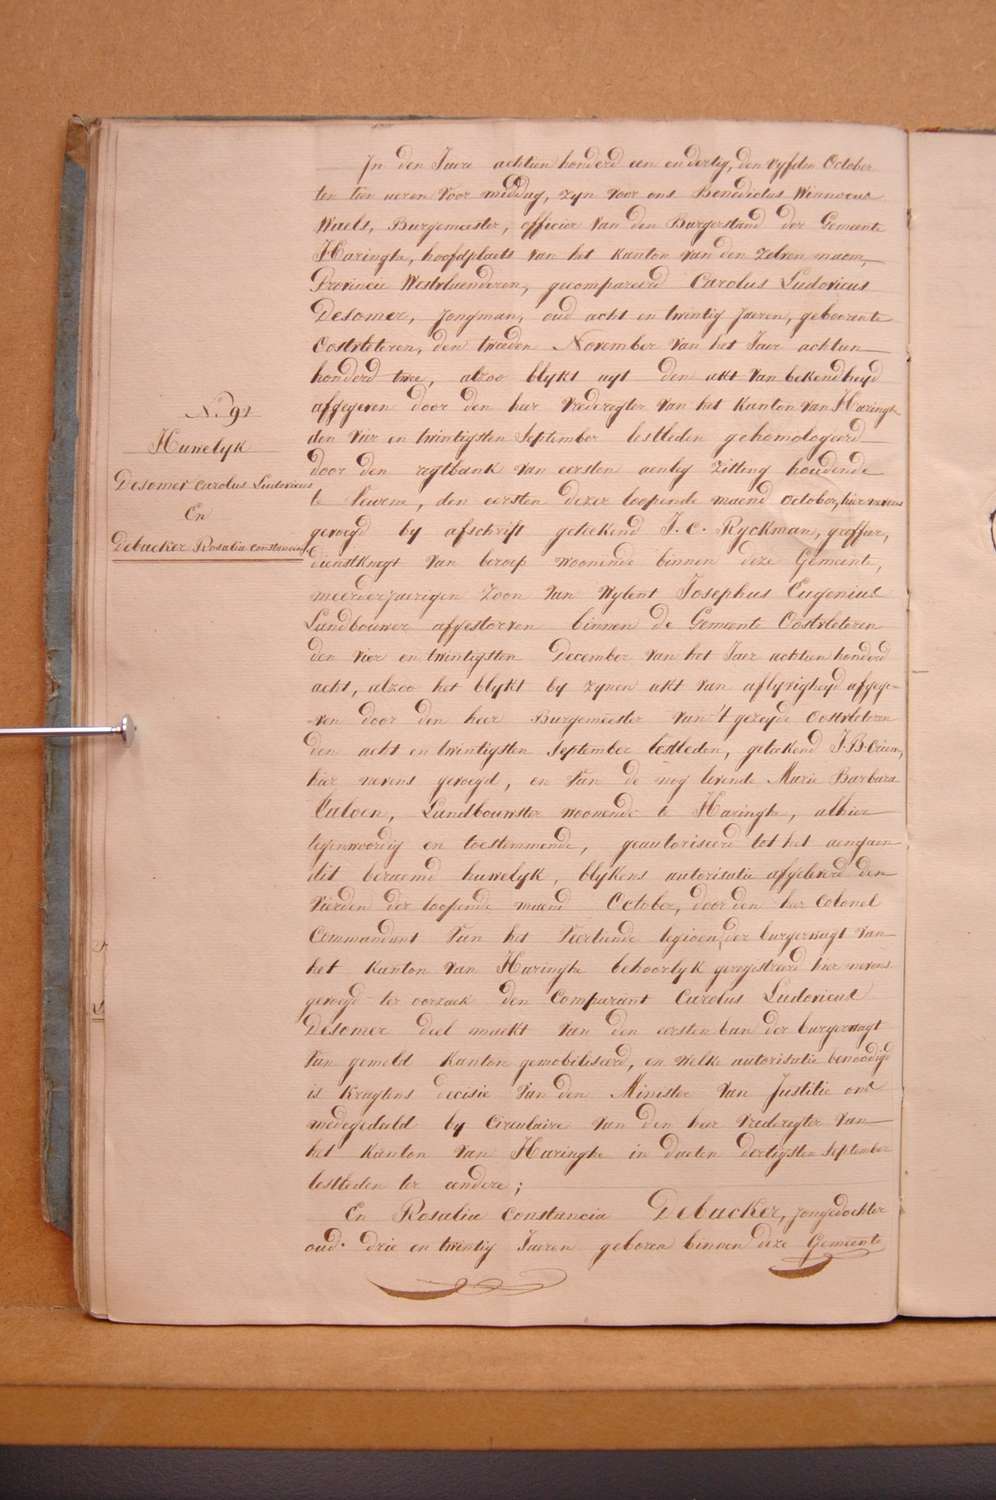 In den Jaere achtien honderd een en dertig, den vyfden October
ten tien ueren voor middag, zyn voor ons Benedictus Winnocus
Waels, Burgemeester, officier van den Burgerstand der Gemeente
Haringhe, hoofdplaets van het kanton van den zelven naem,
Provincie Westvlaenderen, gecompareerd Carolus Ludovicus
Desomer, jongman, oud acht en twintig Jaeren, geboren te
Oostvleteren, den tweeden November van het Jaer achtien
honderd twee, alzoo blykt uyt den akt van bekendheyd
afgegeven door den heer Vrederegter van het Kanton van Haringhe
den vier en twintigsten September lestleden gehomologeerd
door den regtbank van eersten aenleg zitting houdende
te Veurne, den eersten dezer loopende maend october, hier nevens
gevoegd by afschrift geteekend J. C. Ryckman, greffier,
dienstknegt van beroep woonende binnen deze Gemeente,
meerderjaerigen zoon van wylent Josephus Eugenius
Landbouwer afgestorven binnen de Gemeente Oostvleteren
den vier en twintigsten December van het Jaer achtien honderd
acht, alzoo het blykt by zynen akt van aflyvigheyd afgege-
-ven door den heer Burgemeester van 't gezeyde Oostvleteren
den acht en twintigsten September lestleden, geteekend J. B.
hier nevens gevoegd, en van de nog levende Marie Barbara
Landbouwster woonende te Haringhe, alhier
tegenwoordig en toestemmende, geautoriseerd tot het aengaen
dit beraemd huwelyk, blykens autorisatie afgeleverd den
vierden der loopende maend October, door den heer Colonel
Commandant van het veertiende legioen der burgerwagt van
het kanton van Haringhe behoorlyk geregistreerd hier nevens
gevoegd ter oorzaek den Comparant Carolus Ludovicus
Desomer deel maekt van den eersten ban der burgerwagt
van gemeld Kanton gemobiliseerd, en welke autorisatie benoodigd
is kragtens decisie van den Minister van Justitie ons
medegedeeld by Circulaire van den heer Vrederegter van
het Kanton van Haringhe in daeten dertigsten September
lestleden ter andere;
En Rosalia Constancia Debacker, jongedochter
oud drie en twintig Jaeren geboren binnen deze Gemeente
No. 91
Huwelyk
Desomer Carolus Ludovicus
En
Debacker Rosalia Constancia